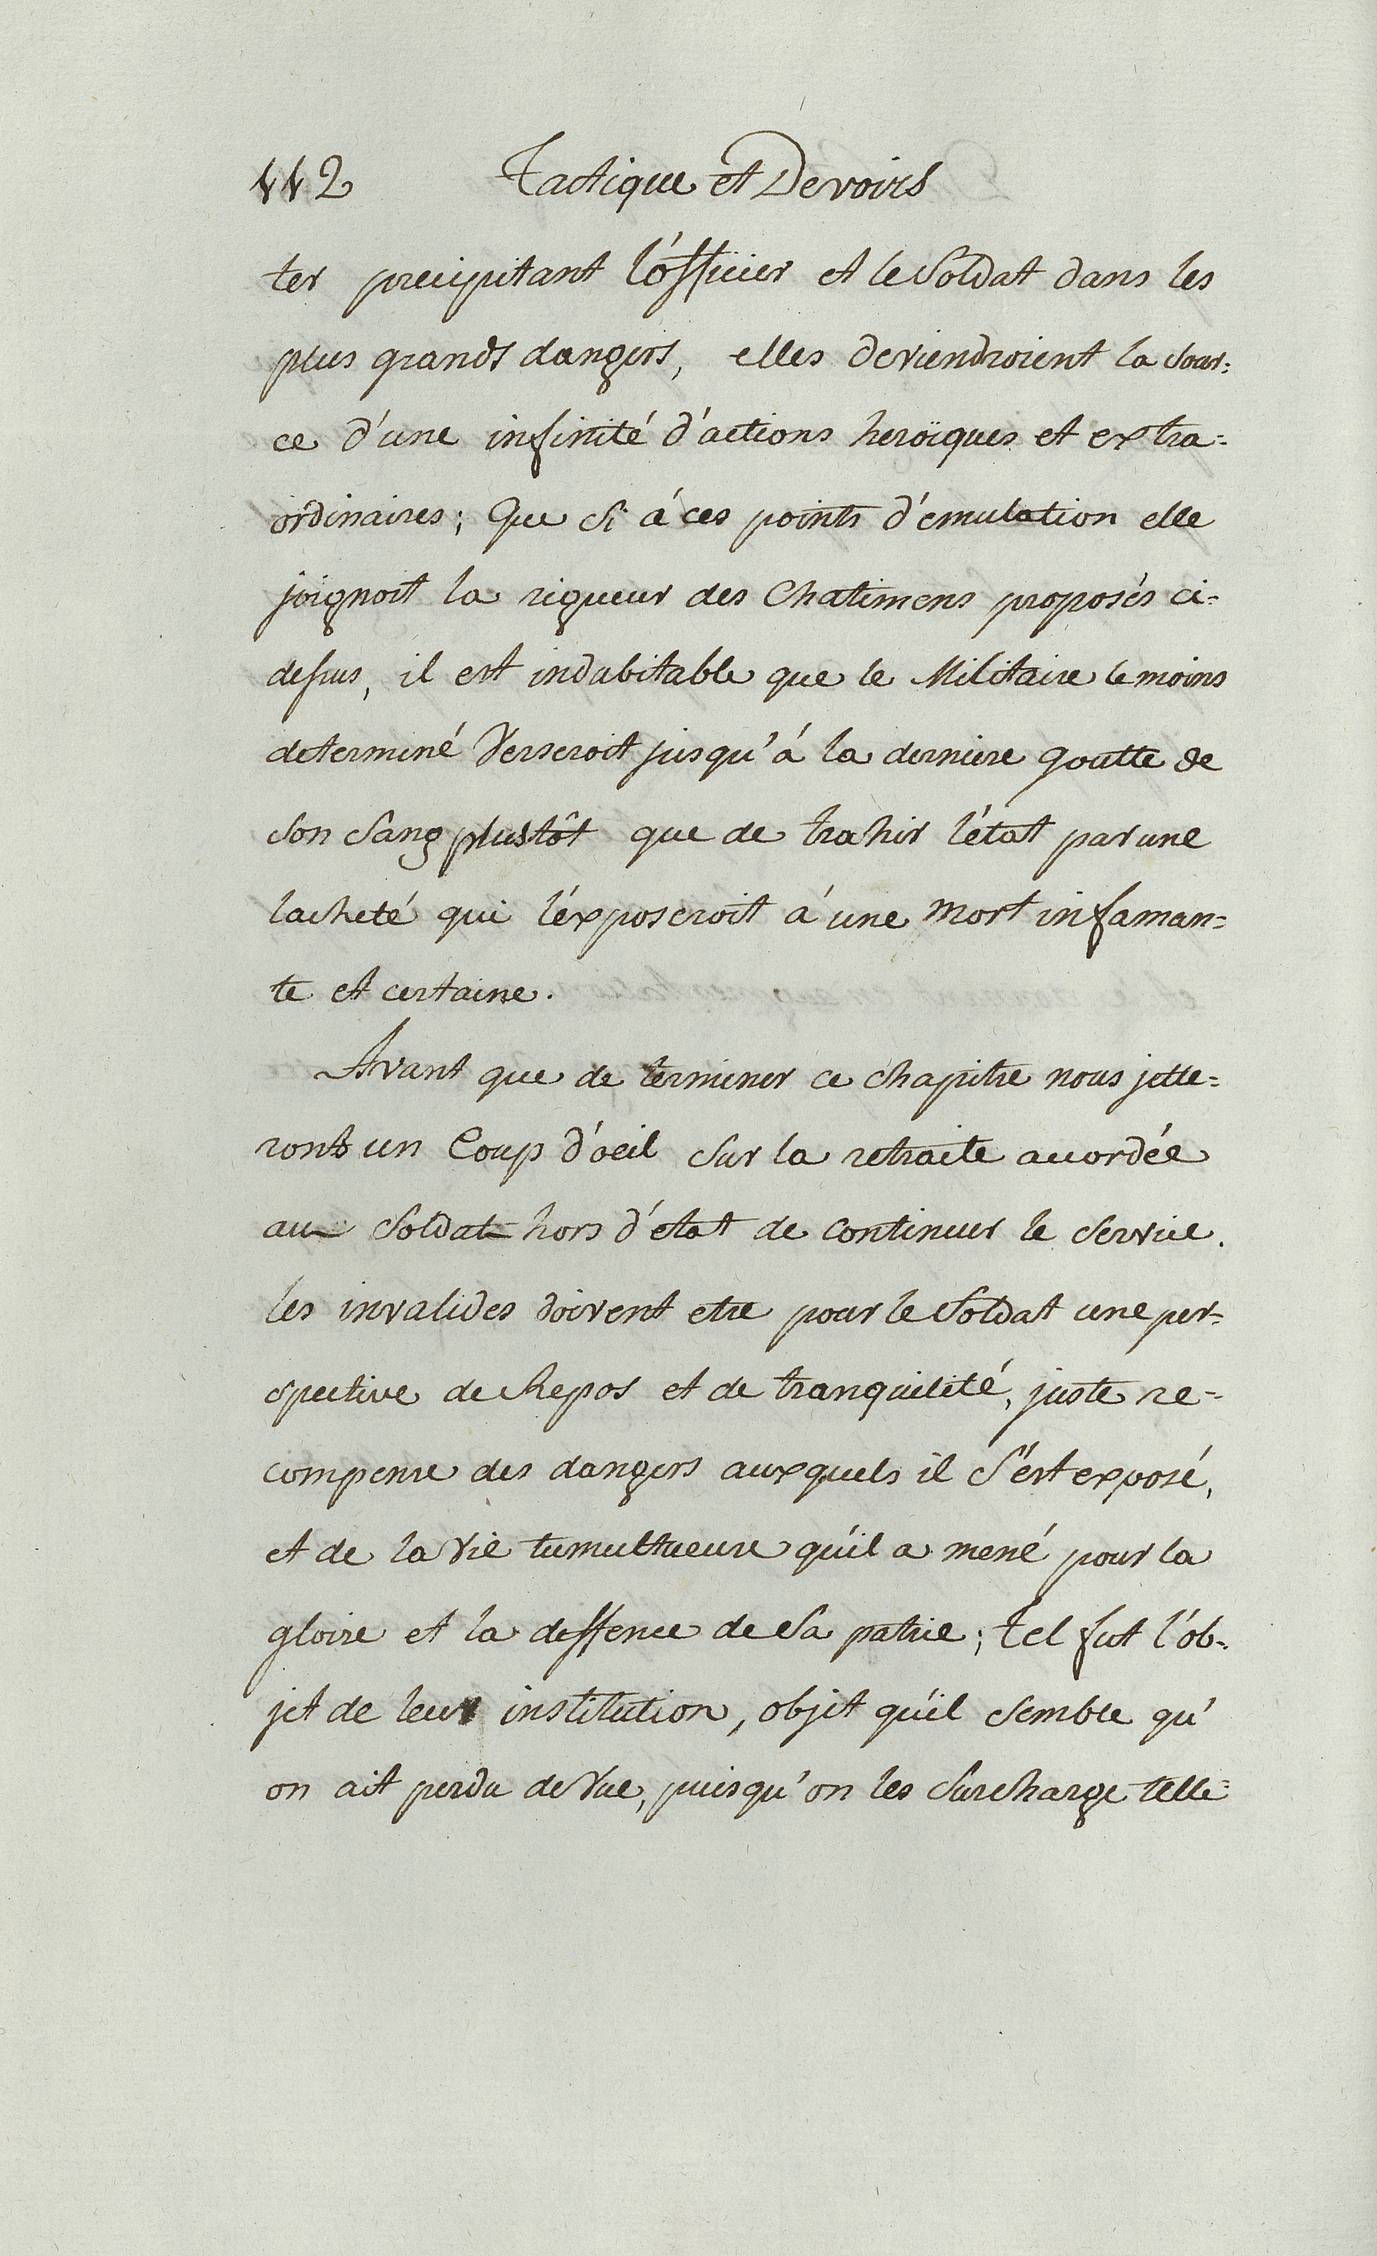 442 Tactique et Devoirs
ter precipitant l'officier et le Soldat dans les
plus grands dangers, elles deviendroient la Sour=
ce d'une infinité d'actions heroïques et extra=
ordinaires; Que Si á ces points d'emulation elle
joignoit la rigueur des Chatimens proposés ci=
dessus, il est indubitable que le Militaire le moins
determiné Verseroit jusqu'á la derniere goutte de
Son Sang plustôt que de trahir l'état par une
lacheté qui l'éxposeroit á une mort infaman=
te et certaine.
Avant que de terminer ce chapitre nous jette=
ront un Coup d'oeil Sur la retraite accordée
au Soldat hors d'état de continuer le Service.
les invalides doivent etre pour le Soldat une per=
spective de Repos et de tranquilité, juste re=
compense des dangers auxquels il S'est exposé,
et de la Vie tumultueuse qu'il a mené pour la
gloire et la deffence de Sa patrie; tel fut l'ob=
jet de leur institution, objet qu'il Semble qu'
on ait perdu de Vue, puisqu'on les Surcharge telle=